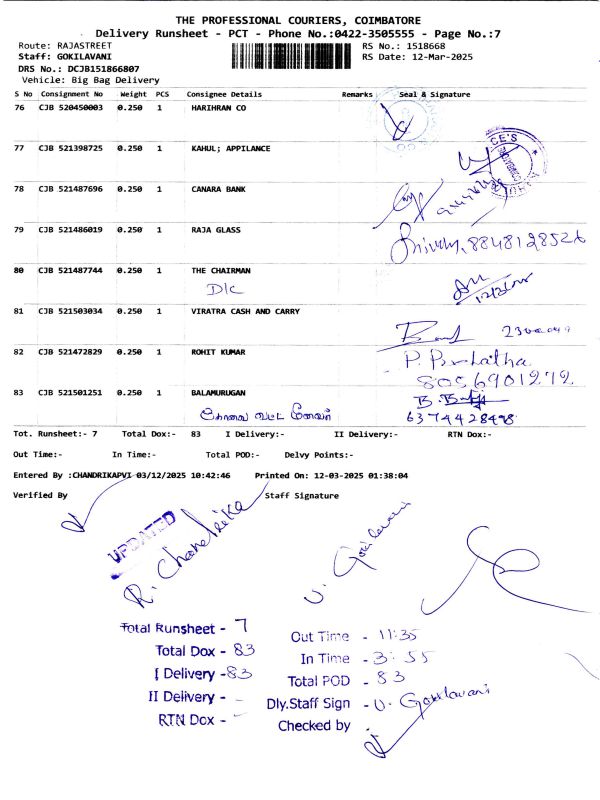 THE PROFESSIONAL COURIERS, COIMBATORE
Delivery Runsheet - PCT - Phone No.:0422-3505555 - Page No.:7
Route: RAJASTREET RS No.: 1518668
Staff: GOKILAVANI RS Date: 12-Mar-2025
DRS No.: DCJB151866807
Vehicle: Big Bag Delivery
S No Consignment No Weight PCS Consignee Details Remarks Seal & Signature
76 CJB 520450003 0.250 1 HARIHRAN CO
77 CJB 521398725 0.250 1 KAHUL; APPILANCE
78 CJB 521487696 0.250 1 CANARA BANK
79 CJB 521486019 0.250 1 RAJA GLASS
80 CJB 521487744 0.250 1 THE CHAIRMAN
D/C
81 CJB 521503034 0.250 1 VIRATRA CASH AND CARRY
82 CJB 521472829 0.250 1 ROHIT KUMAR
P. Premlatha
8056901272
83 CJB 521501251 0.250 1 BALAMURUGAN
6374428498
Tot. Runsheet:- 7 Total Dox:- 83 I Delivery:- II Delivery:- RTN Dox:-
Out Time:- In Time:- Total POD:- Delvy Points:-
Entered By :CHANDRIKAPVI 03/12/2025 10:42:46 Printed On: 12-03-2025 01:38:04
Verified By Staff Signature
UPDATED
R. Chandrika
U. Gokilavani
Total Runsheet - 7
Total Dox - 83
I Delivery - 83
II Delivery - -
RTN Dox - -
Out Time - 11:35
In Time - 3:55
Total POD - 83
Dly.Staff Sign - U. Gokilavani
Checked by -